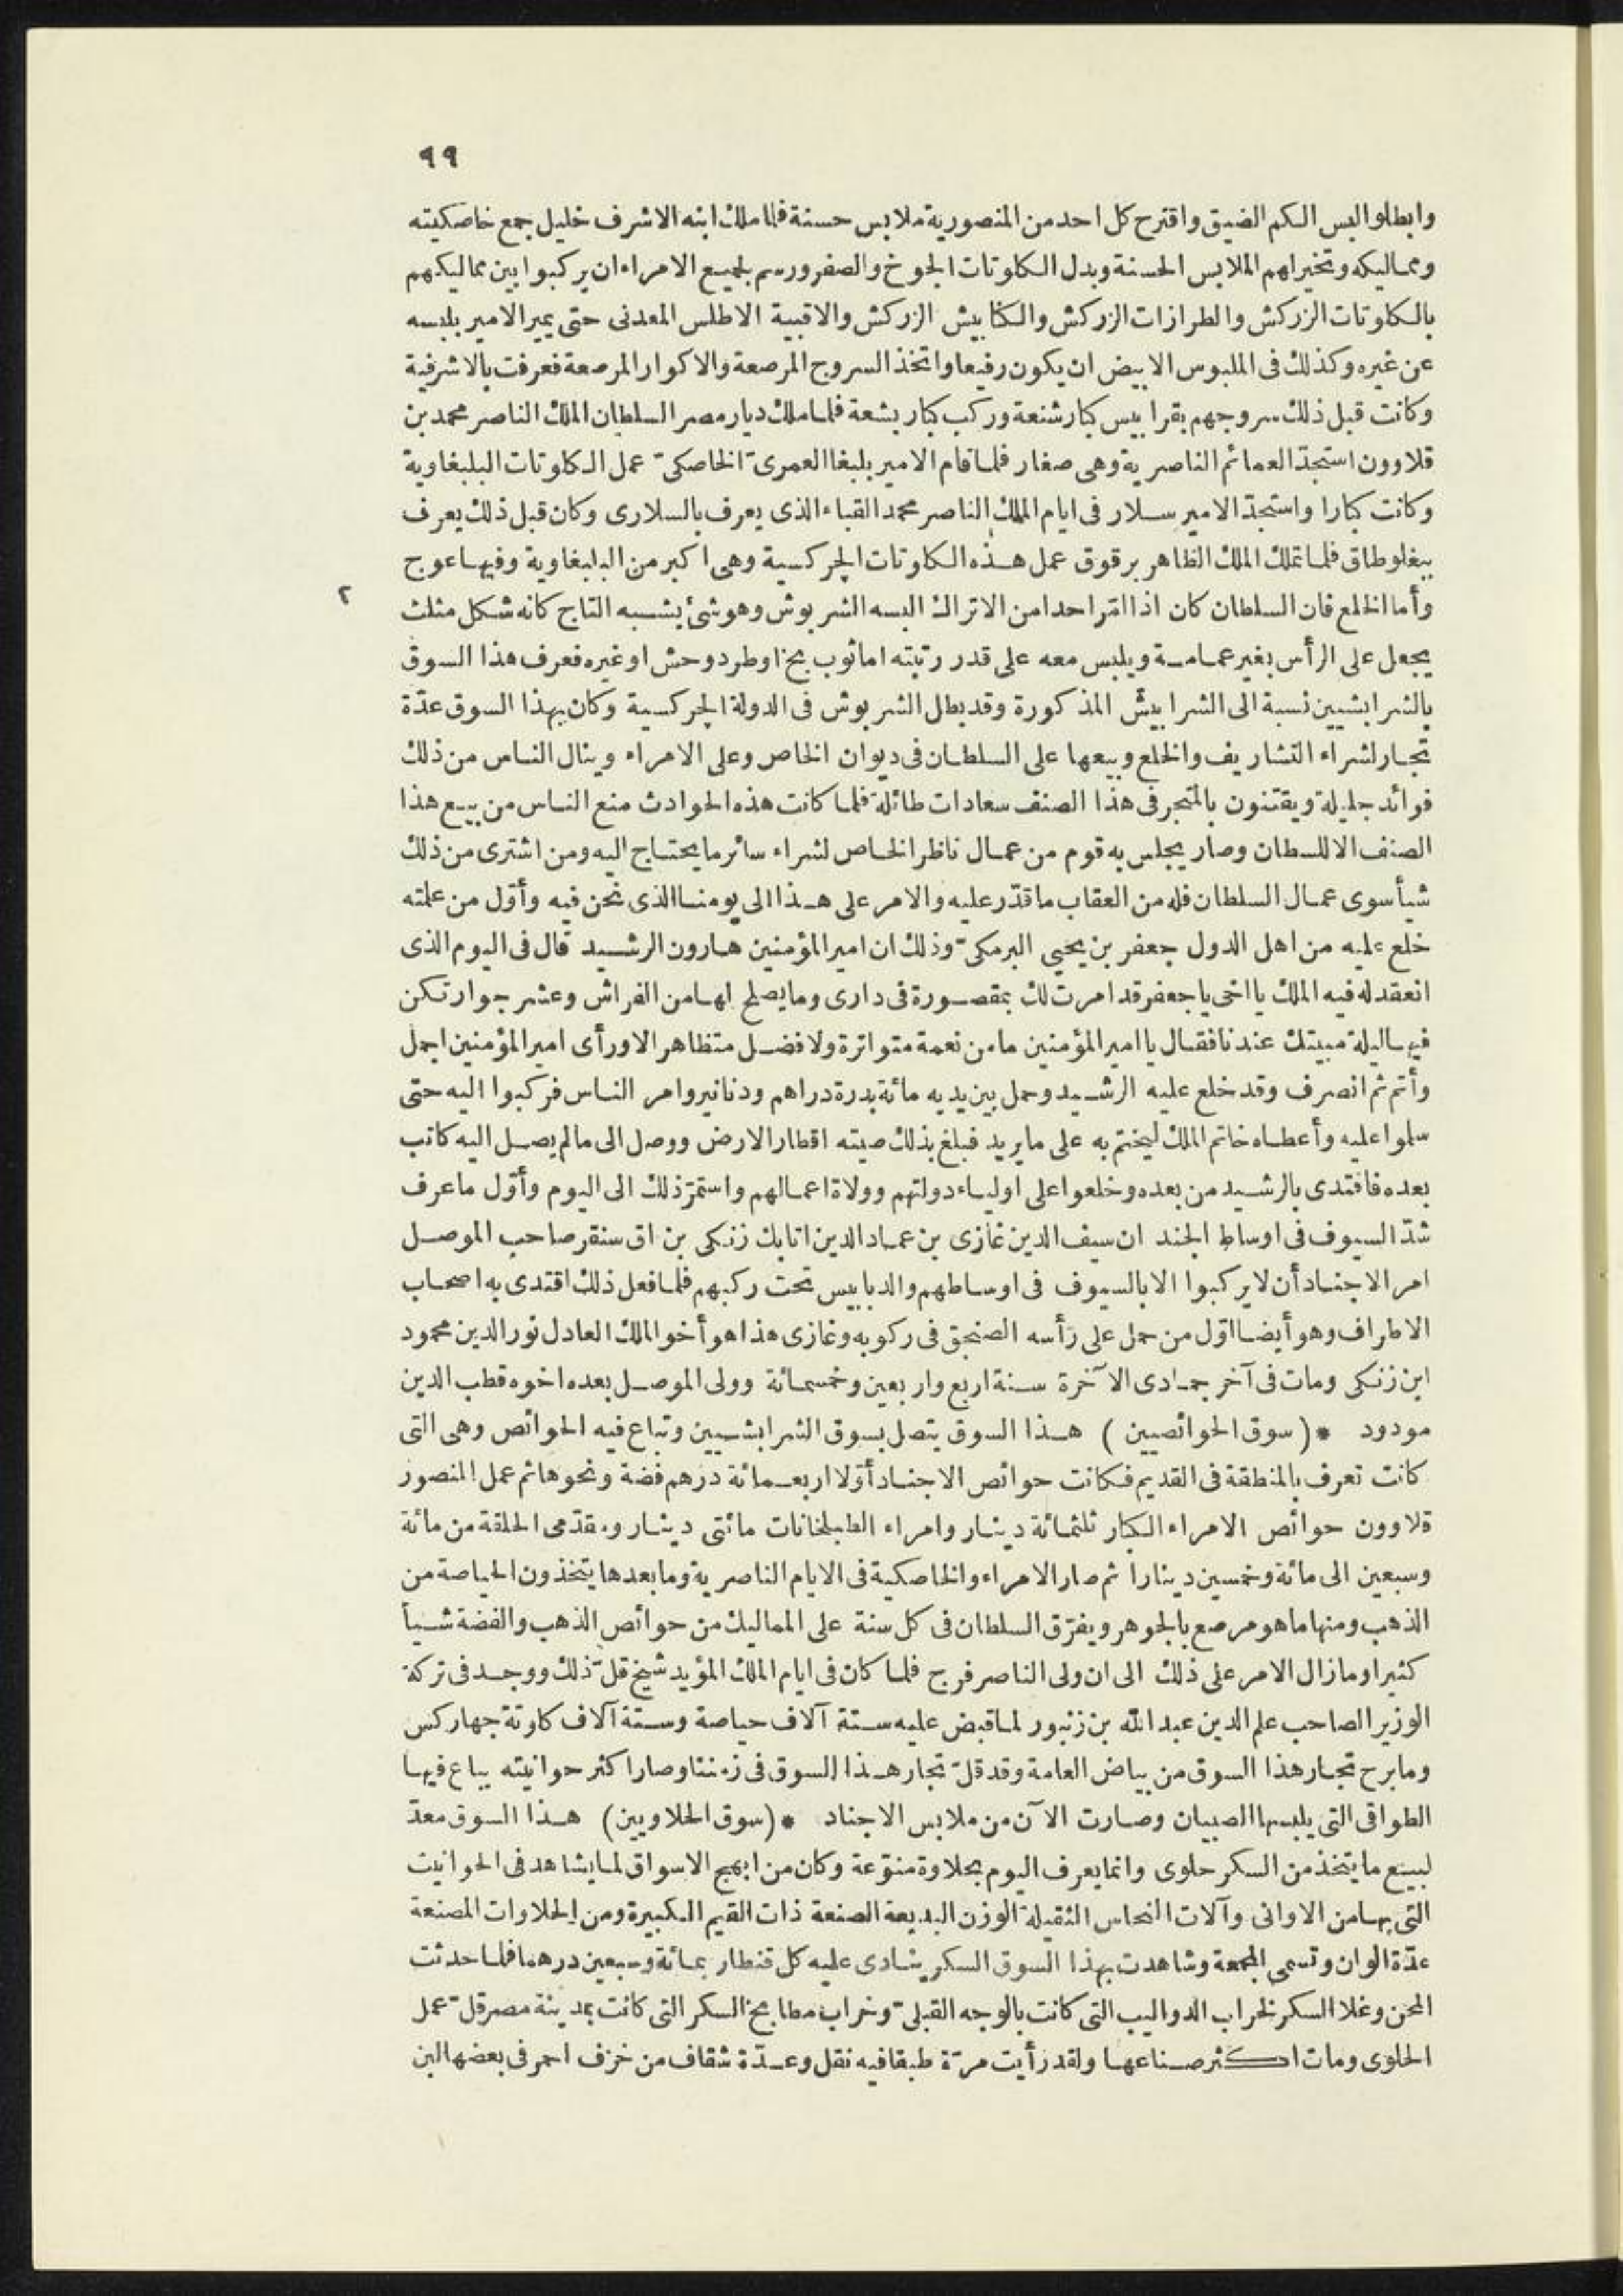 ٩٩
وابطلوا لبس الكم الضيق واقترح كل احد من المنصورية ملابس حسنة فلما ملك ابنه الاشرف خليل جمع خاصكيته
ومماليكه وتخير لهم الملابس الحسنة وبدل الكلوتات الجوخ والصفر ورسم لجميع الامراء ان يركبوا بين مماليكهم
بالكلوتات الزركش والطرازات الزركش والكنابيش الزركش والاقبية الاطلس المعدنى حتى يميز الامير بلبسه
عن غيره وكذلك فى الملبوس الابيض ان يكون رفيعا واتخذ السروج المرصعة والاكوار المرصعة فعرفت بالاشرفية
وكانت قبل ذلك سروجهم بقرابيس كبار شنعة وركب كبار بشعة فلما ملك ديار مصر السلطان الملك الناصر محمد بن
قلاوون استجدّ العمائم الناصرية وهى صغار فلما قام الامير يلبغا العمرى الخاصكى عمل الكلوتات اليلبغاوية
وكانت كبارا واستجدّ الامير سلار فى ايام الملك الناصر محمد القباء الذى يعرف بالسلارى وكان قبل ذلك يعرف
ببغلوطاق فلما تملك الملك الظاهر برقوق عمل هذه الكلوتات الجركسية وهى اكبر من اليلبغاوية وفيها عوج
وأما الخلع فان السلطان كان اذا امّر احدا من الاتراك البسه الشربوش وهو شئ يشبه التاج كانه شكل مثلث
٢
يجعل على الرأس بغير عمامة ويلبس معه على قدر رتبته اما ثوب بخ او طرد وحش او غيره فعرف هذا السوق
بالشرابشيين نسبة الى الشرابيش المذكورة وقد بطل الشربوش فى الدولة الجركسية وكان بهذا السوق عدّة
تجار لشراء التشاريف والخلع وبيعها على السلطان فى ديوان الخاص وعلى الامراء وينال الناس من ذلك
فوائد جليلة ويقتنون بالمتجر فى هذا الصنف سعادات طائلة فلما كانت هذه الحوادث منع الناس من بيع هذا
الصنف الا للسطان وصار يجلس به قوم من عمال ناظر الخاص لشراء سائر ما يحتاج اليه ومن اشترى من ذلك
شيأ سوى عمال السلطان فله من العقاب ما قدّر عليه والامر على هذا الى يومنا الذى نحن فيه وأوّل من علمته
خلع عليه من اهل الدول جعفر بن يحيى البرمكىّ وذلك ان امير المؤمنين هارون الرشيد قال فى اليوم الذى
انعقد له فيه الملك يا اخى يا جعفر قد امرت لك بمقصورة فى دارى وما يصلح لها من الفراش وعشر جوار تكن
فيها ليلة مبيتك عندنا فقال يا امير المؤمنين ما من نعمة متواترة ولا فضل متظاهر الا ورأى امير المؤمنين اجمل
وأتم ثم انصرف وقد خلع عليه الرشيد وحمل بين يديه مائة بدرة دراهم ودنانير وامر الناس فركبوا اليه حتى
سلموا عليه وأعطاه خاتم الملك ليختم به على ما يريد فبلغ بذلك صيته اقطار الارض ووصل الى ما لم يصل اليه كاتب
بعده فاقتدى بالرشيد من بعده وخلعوا على اولياء دولتهم وولاة اعمالهم واستمرّ ذلك الى اليوم وأوّل ما عرف
شدّ السيوف فى اوساط الجند ان سيف الدين غازى بن عماد الدين اتابك زنكى بن اق سنقر صاحب الموصل
امر الاجناد أن لا يركبوا الا بالسيوف فى اوساطهم والدبابيس تحت ركبهم فلما فعل ذلك اقتدى به اصحاب
الاطراف وهو أيضا اوّل من حمل على رأسه الصنجق فى ركوبه وغازى هذا هو أخو الملك العادل نور الدين محمود
ابن زنكى ومات فى آخر جمادى الآخرة سنة اربع واربعين وخمسمائة وولى الموصل بعده اخوه قطب الدين
مودود * (سوق الحوائصيين) هذا السوق يتصل بسوق الشرابشيين وتباع فيه الحوائص وهى التى
كانت تعرف بالمنطقة فى القديم فكانت حوائص الاجناد أوّلا اربعمائة درهم فضة ونحوها ثم عمل المنصور
قلاوون حوائص الامراء الكبار ثلثمائة دينار وامراء الطبلخانات مائتى دينار ومقدّمى الحلقة من مائة
وسبعين الى مائة وخمسين دينارا ثم صار الامراء والخاصكية فى الايام الناصرية وما بعدها يتخذون الحياصة من
الذهب ومنها ما هو مرصع بالجوهر ويفرّق السلطان فى كل سنة على المماليك من حوائص الذهب والفضة شيأ
كثيرا وما زال الامر على ذلك الى ان ولى الناصر فرج فلما كان فى ايام الملك المؤيد شيخ قلّ ذلك ووجد فى تركة
الوزير الصاحب علم الدين عبد الله بن زنبور لما قبض عليه ستة آلاف حياصة وستة آلاف كلوتة جهاركس
وما برح تجار هذا السوق من بياض العامة وقد قلّ تجار هذا السوق فى زمننا وصار اكثر حوانيته يباع فيها
الطواقى التى يلبسها الصبيان وصارت الآن من ملابس الاجناد * (سوق الحلاويين) هذا السوق معدّ
لبيع ما يتخذ من السكر حلوى وانما يعرف اليوم بحلاوة منوّعة وكان من ابهج الاسواق لما يشاهد فى الحوانيت
التى بها من الاوانى وآلات النحاس الثقيلة الوزن البديعة الصنعة ذات القيم الكبيرة ومن الحلاوات المصنعة
عدّة الوان وتسمى المجمعة وشاهدت بهذا السوق السكر ينادى عليه كل قنطار بمائة وسبعين درهما فلما حدثت
المحن وغلا السكر لخراب الدواليب التى كانت بالوجه القبلىّ وخراب مطابخ السكر التى كانت بمدينة مصر قلّ عمل
الحلوى ومات اكثر صناعها ولقد رأيت مرّة طبقا فيه نقل وعدّة شقاف من خزف احمر فى بعضها لبن